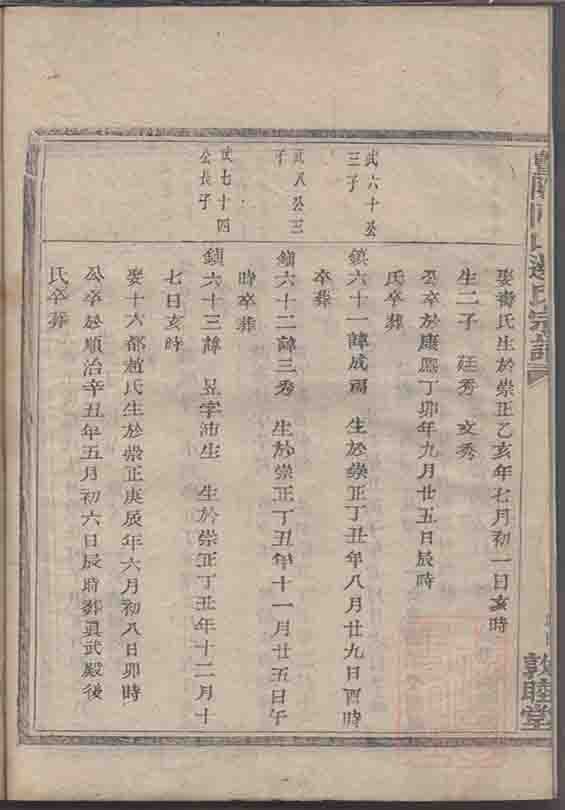 氏宗譜
敦睦堂
娶潘氏生於崇正乙亥年七月初一日亥時
生二子 廷秀 文秀
公卒於康熙丁卯年九月廿五日辰時
氏卒葬
武六十公
三子
鎮六十一諱成福 生於崇正丁丑年八月廿九日酉時
卒葬
武八公三
子
鎮六十二諱三秀 生於崇正丁丑年十一月廿五日午
時卒葬
武七十四
公長子
鎮六十三諱昱字沛生 生於崇正丁丑年十二月十
七日亥時
娶十六都趙氏生於崇正庚辰年六月初八日卯時
公卒於順治辛丑年五月初六日辰時葬真武殿後
氏卒葬